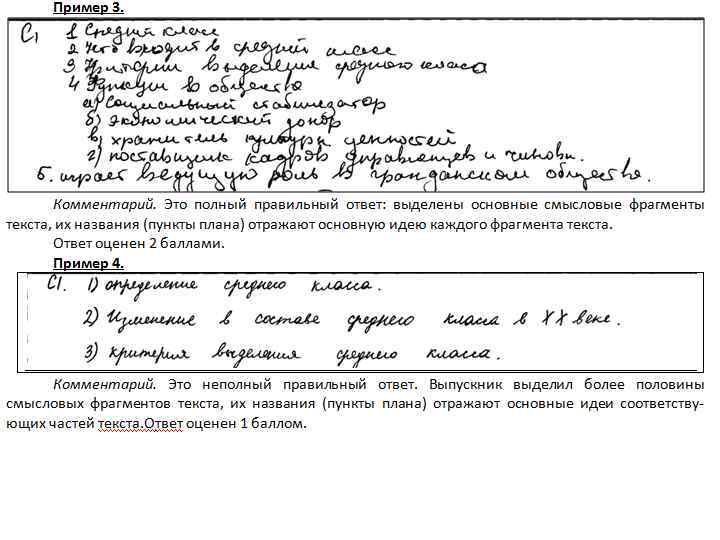 Пример 3.
С1 1 Средний класс
2 Что входит в средний класс
3 Критерии выделения среднего класса
4 Функции в обществе
а) социальный стабилизатор
б) экономический донор
в) хранитель культуры ценностей
г) поставщик кадров управленцев и чиновн.
5. играет ведущую роль в гражданском обществе.
Комментарий. Это полный правильный ответ: выделены основные смысловые фрагменты
текста, их названия (пункты плана) отражают основную идею каждого фрагмента текста.
Ответ оценен 2 баллами.
Пример 4.
С1. 1) определение среднего класса.
2) Изменение в составе среднего класса в XX веке.
3) критерия выделения среднего класса.
Комментарий. Это неполный правильный ответ. Выпускник выделил более половины
смысловых фрагментов текста, их названия (пункты плана) отражают основные идеи соответству-
ющих частей текста.Ответ оценен 1 баллом.